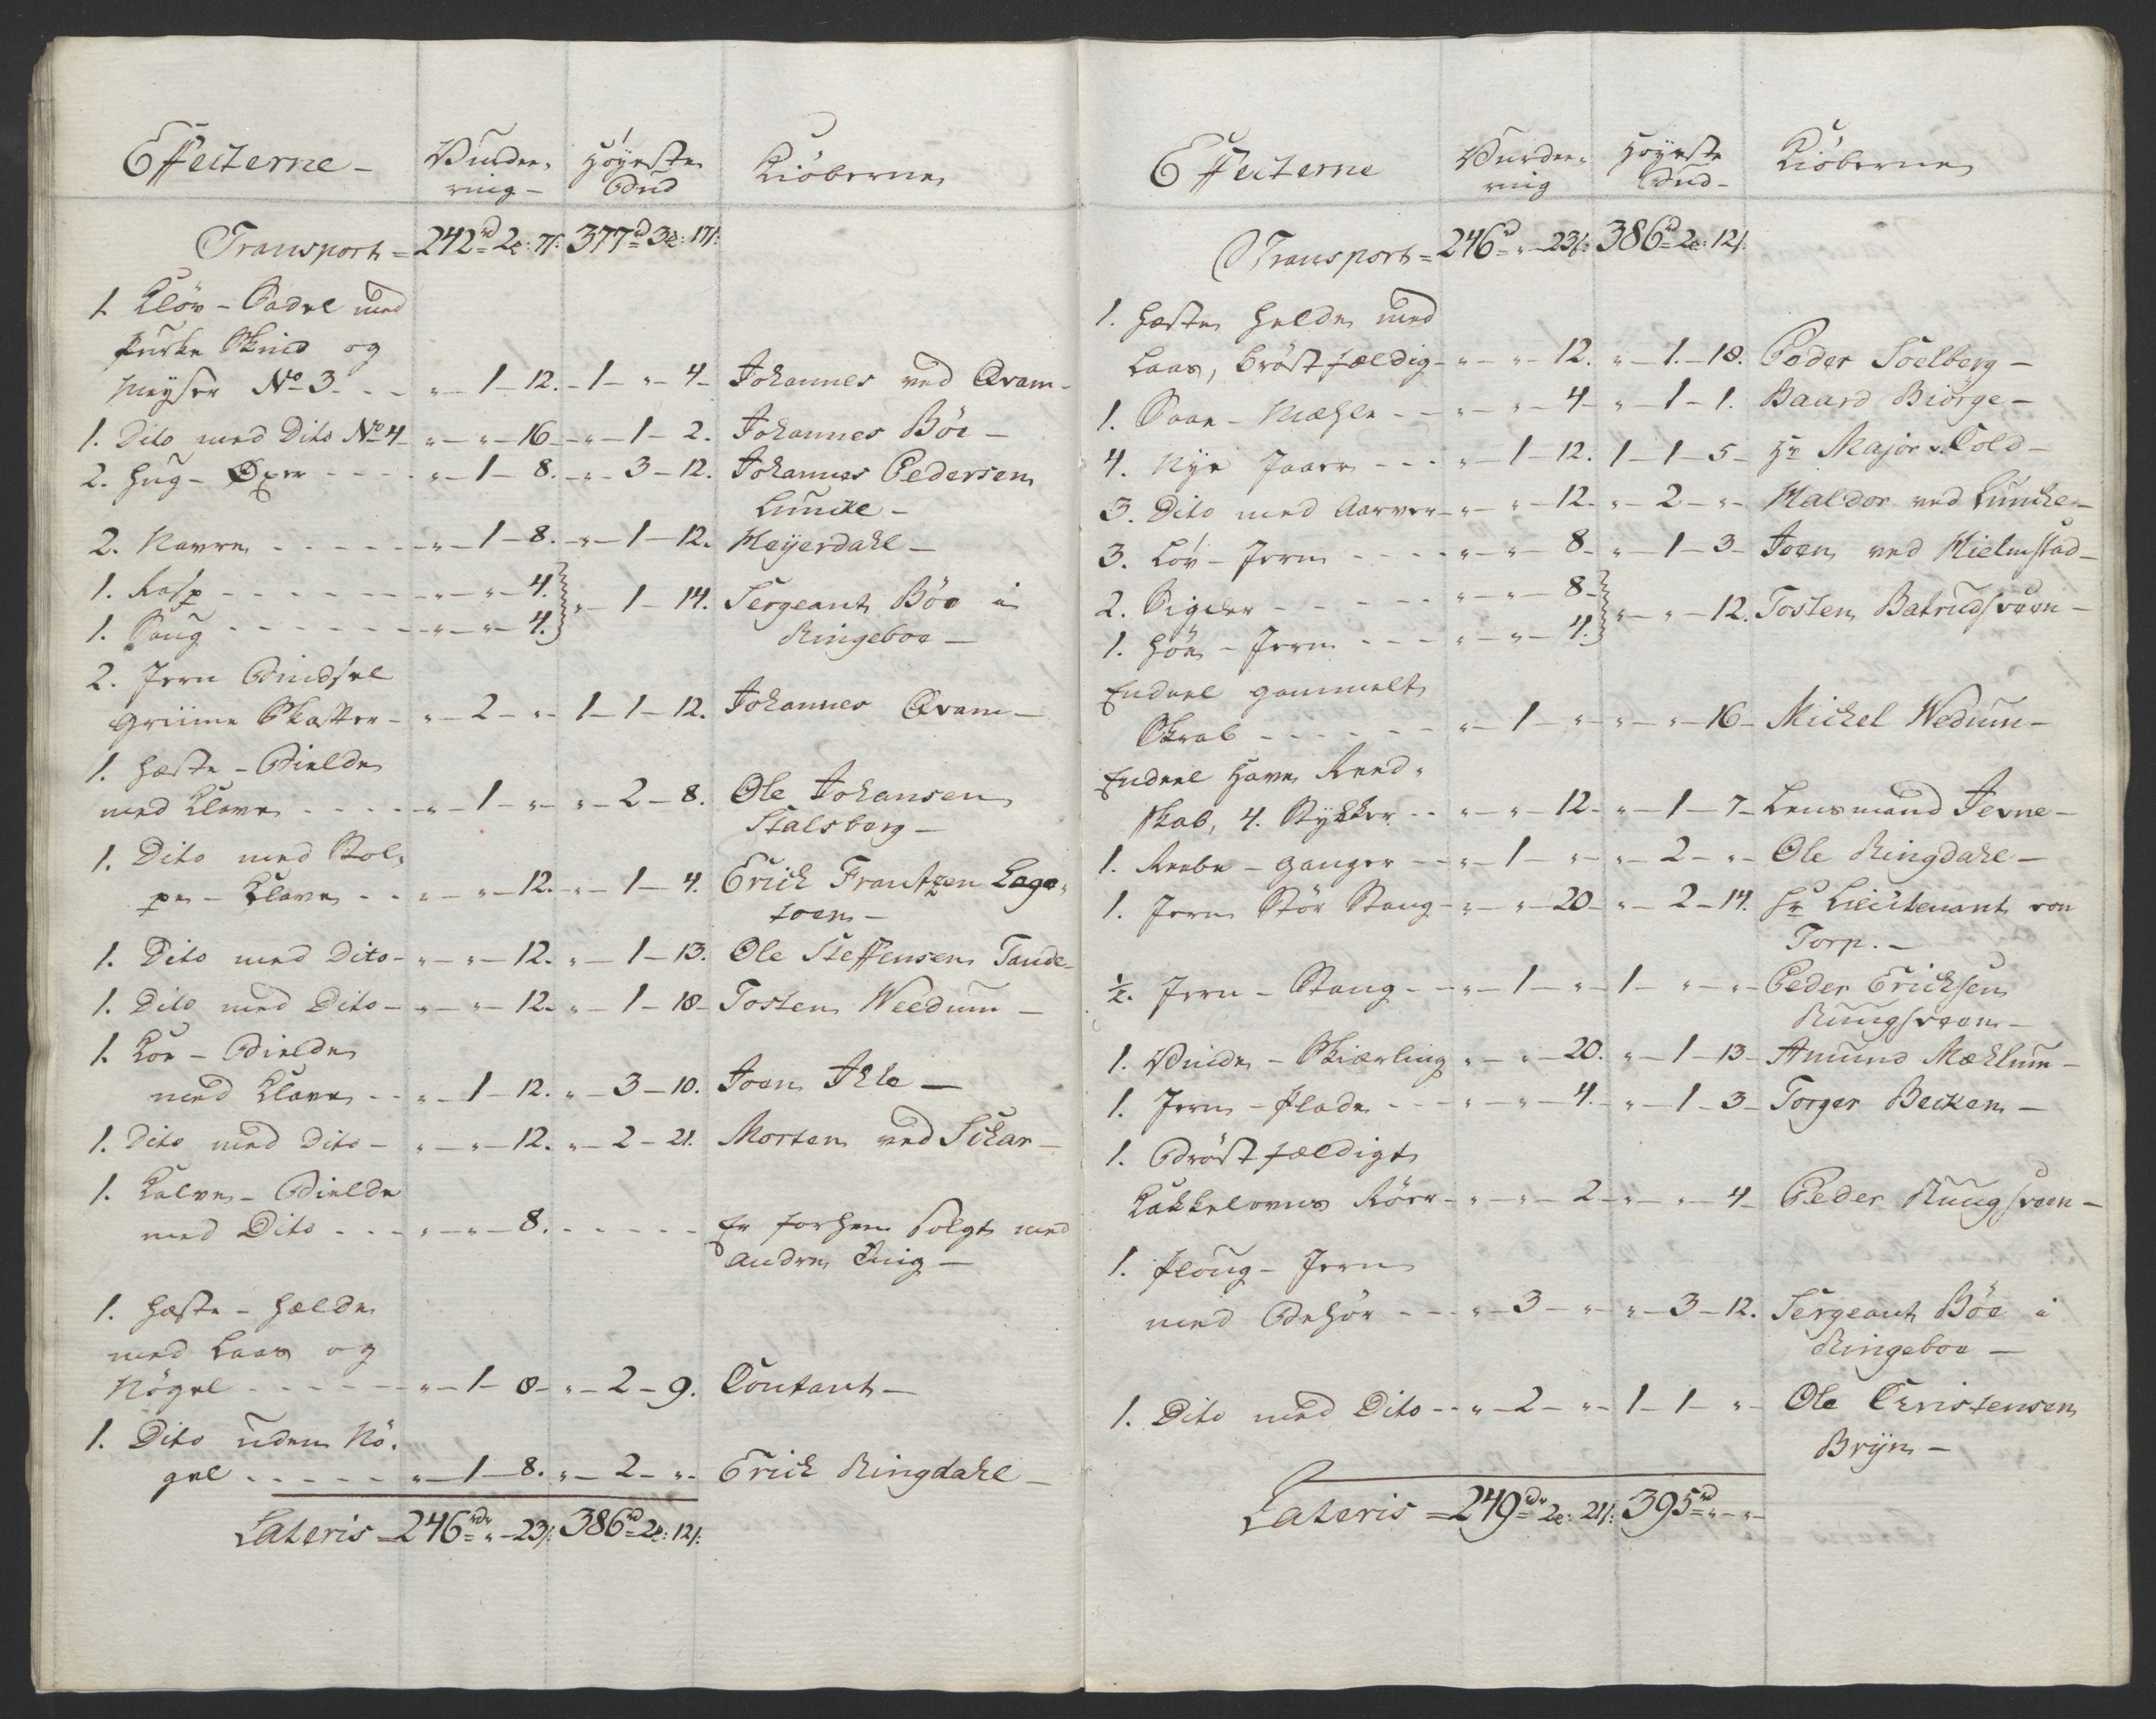 Effecterne - Vurde- Höyeste Kiöberne
ring - Bud
Transport = 242 rd 2 {: 7 ß: 377 rd 3 {: 17 ß:
1. Klöv - Sadel med
Purke Skind og
Meyser No 3. - - „ - 1 - 12. - 1 - „ - 4 - Johannes ved Qvam -
1. Dito med Dito No 4 - „ - „ - 16 - „ - 1 - 2. Johannes Böe -
2. Hug - Öxer - - - - „ - 1 - 8. - „ - 3 - 12. Johannes Pedersen
Luncke -
2. Navre - - - - - „ - 1 - 8. - „ - 1 - 12. Meyerdahl -
1. Rasp - - - - - - „ - „ - 4. } „ - 1 - 14. Sergeant Böe i
1. Saug - - - - - - „ - „ - 4. } Ringeboe -
2. Jern Bindsel
Griime Skatter - „ - 2 - „ - 1 - 1 - 12. Johannes Qvam -
1. Hæste - Bielde
med Klave - - - - „ - 1 - „ - „ - 2 - 8. Ole Johansen
Stalsberg -
1. Dito med Stol-
pe - Klave - - „ - „ - 12. - „ - 1 - 4. Erich Frantzen Lage-
toen -
1. Dito med Dito - „ - „ - 12. „ - 1 - 13. Ole Steffensen Tande -
1. Dito med Dito - „ - „ - 12. „ - 1 - 18 - Tosten Weedum -
1. Koe - Bielde
med Klave - - „ - 1 - 12. „ - 3 - 10. Joen Ihle -
1. Dito med Dito - „ - „ - 12. „ - 2 - 21. Morten ved Schar -
1. Kalve - Bielde
med Dito - - - „ - „ - 8. - - - - - Er forhen solgt med
andre Ting -
1. Hæste - Hælde
med Laas og
Nögel - - - - - - „ - 1 - 8 - „ - 2 - 9. Contant -
1. Dito uden Nö-
gel - - - - - „ - 1 - 8. „ - 2 - „ - Erich Ringdahl -
Lateris = 246 rdr „ - 23 ß: 386 rd 2 {: 12 ß:
Effecterne Vurde- Höyeste Kiöberne
ring Bud -
Transport = 246 rd „ - 23 ß: 386 rd 2 {: 12 ß:
1. Hæste Helde med
Laas, bröstfældig - „ - „ - 12. „ - 1. - 18. Peder Soelberg -
1. Saae - Mæhle - - „ - „ - 4 - „ - 1 - 1. Baard Biörge -
4. Nye Jaaer - - - „ - 1 - 12. 1 - 1 - 5 - Hr Major v. Cold -
3. Dito med Aarver - „ - „ - 12. „ - 2 - „ - Haldor ved Luncke -
3. Löv - Jern - - - - „ - „ - 8 - „ - 1 - 3 - Joen ved Hielmstad -
2. Sigder - - - - - „ - „ - 8 - } „ - „ - 12. Tosten Batrudsveen -
1. Höe - Jern - - - „ - „ - 4. }
Endeel gammelt
Skrab - - - - - - „ - 1 - „ - „ - „ - 16 - Michel Wedum -
Endeel Have Reed-
skab, 4. Stykker - - „ - „ - 12 - „ - 1 - 7 - Lensmand Jevne -
1. Reebe - ganger - - „ - 1 - „ - „ - 2 - „ - Ole Ringdahl -
1. Jern Stör Stang - „ - „ - 20 - „ - 2 - 14. Hr Lieutenant von
Torp. -
½. Jern - Stang - - „ - 1 - „ - 1 - „ - „ - Peder Erichsen
Ruugsveen -
1. Vinde - Skiærling „ - „ - 20. „ - 1 - 13 - Amund Mæhlum -
1. Jern - Plade - - - „ - „ - 4. - „ - 1 - 3 - Torger Becken -
1. Bröstfældigt
Kakkelovns Röer - „ - „ - 2 - „ - „ - 4 - Peder Ruugsveen -
1. Ploug - Jern
med Behör - - - „ - 3 - „ - „ - 3 - 12. Sergeant Böe i
Ringeboe -
1. Dito med Dito - - „ - 2 - „ - 1 - 1 - „ - Ole Christensen
Bryn -
Lateris = 249 rdr 2 {: 21 ß: 395 rd „ - „ -